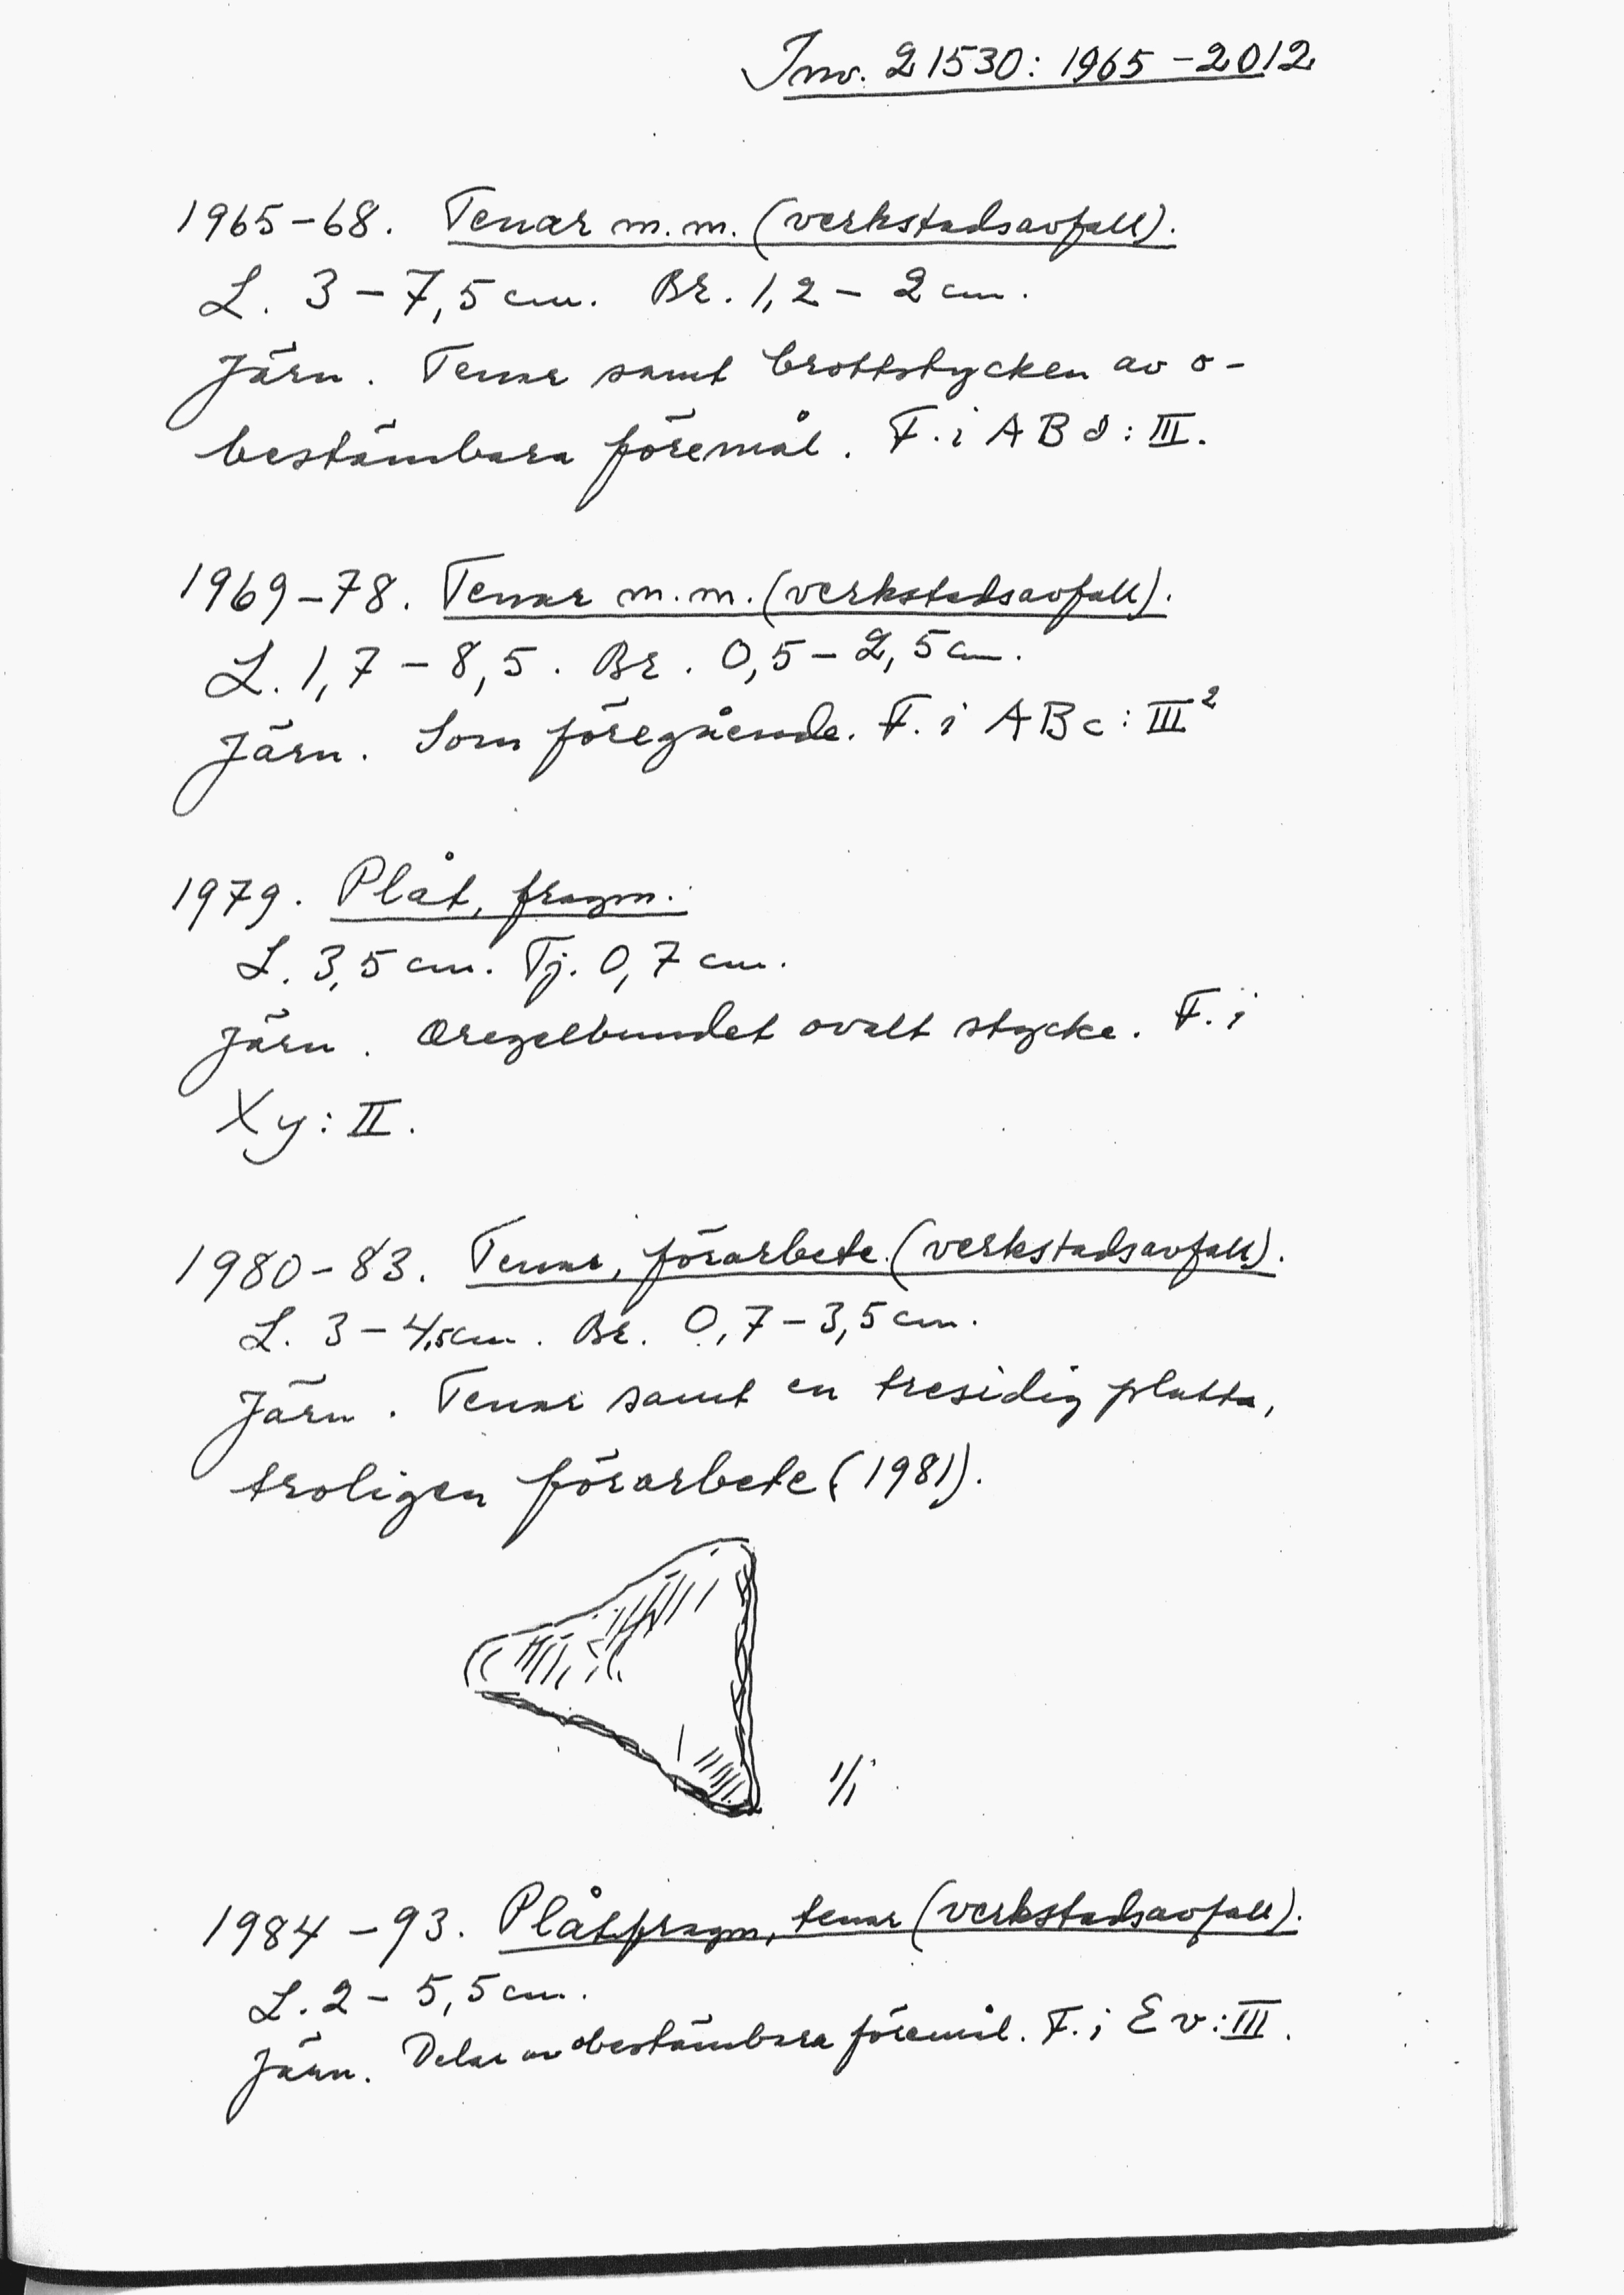 Inv. 21530: 1965-2012
1965-68. Tenar m.m. (verkstadsavfall).
L. 3-7,5 cm. Br. 1,2-2 cm.
Järn. Tenar samt brottstycken av o-
bestämbara föremål. F. i AB d: III.
1969-78. Tenar m.m. (verkstadsavfall).
L. 1,7-8,5. Br. 0,5-2,5 cm.
Järn. Som föregående. F. i ABc: III²
1979. Plåt, fragm.
L. 3,5 cm. Tj. 0,7 cm.
Järn. Oregelbundet ovalt stycke. F. i
Xy: II.
1980-83. Tenar, förarbete (verkstadsavfall).
L. 3-4,5 cm. Br. 0,7-3,5 cm.
Järn. Tenar samt en tresidig platta,
troligen förarbete (1981).
1/1
1984-93. Plåtfragm, tenar (verkstadsavfall).
L. 2-5,5 cm.
Järn. Delar av obestämbara föremål. F. i Ev: III.